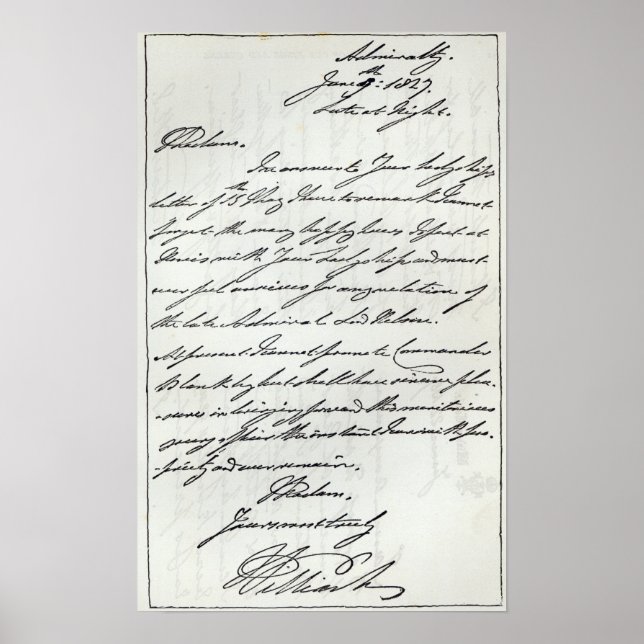 Admiralty.
June 9th: 1827.
Late at Night.
Madam.
In answer to Your Ladyships
letter of 15th May I have to remark I cannot
forget the many happy hours I spent at
with Your Ladyship and must
ever feel anxious for any relation of
the late Admiral Lord Nelson.
At present I cannot promote Commander
but shall have sincere plea-
-sure in bringing forward this meritorious
young officer the instant I can with pro-
-priety and ever remain.
Madam.
Yours most truly
William